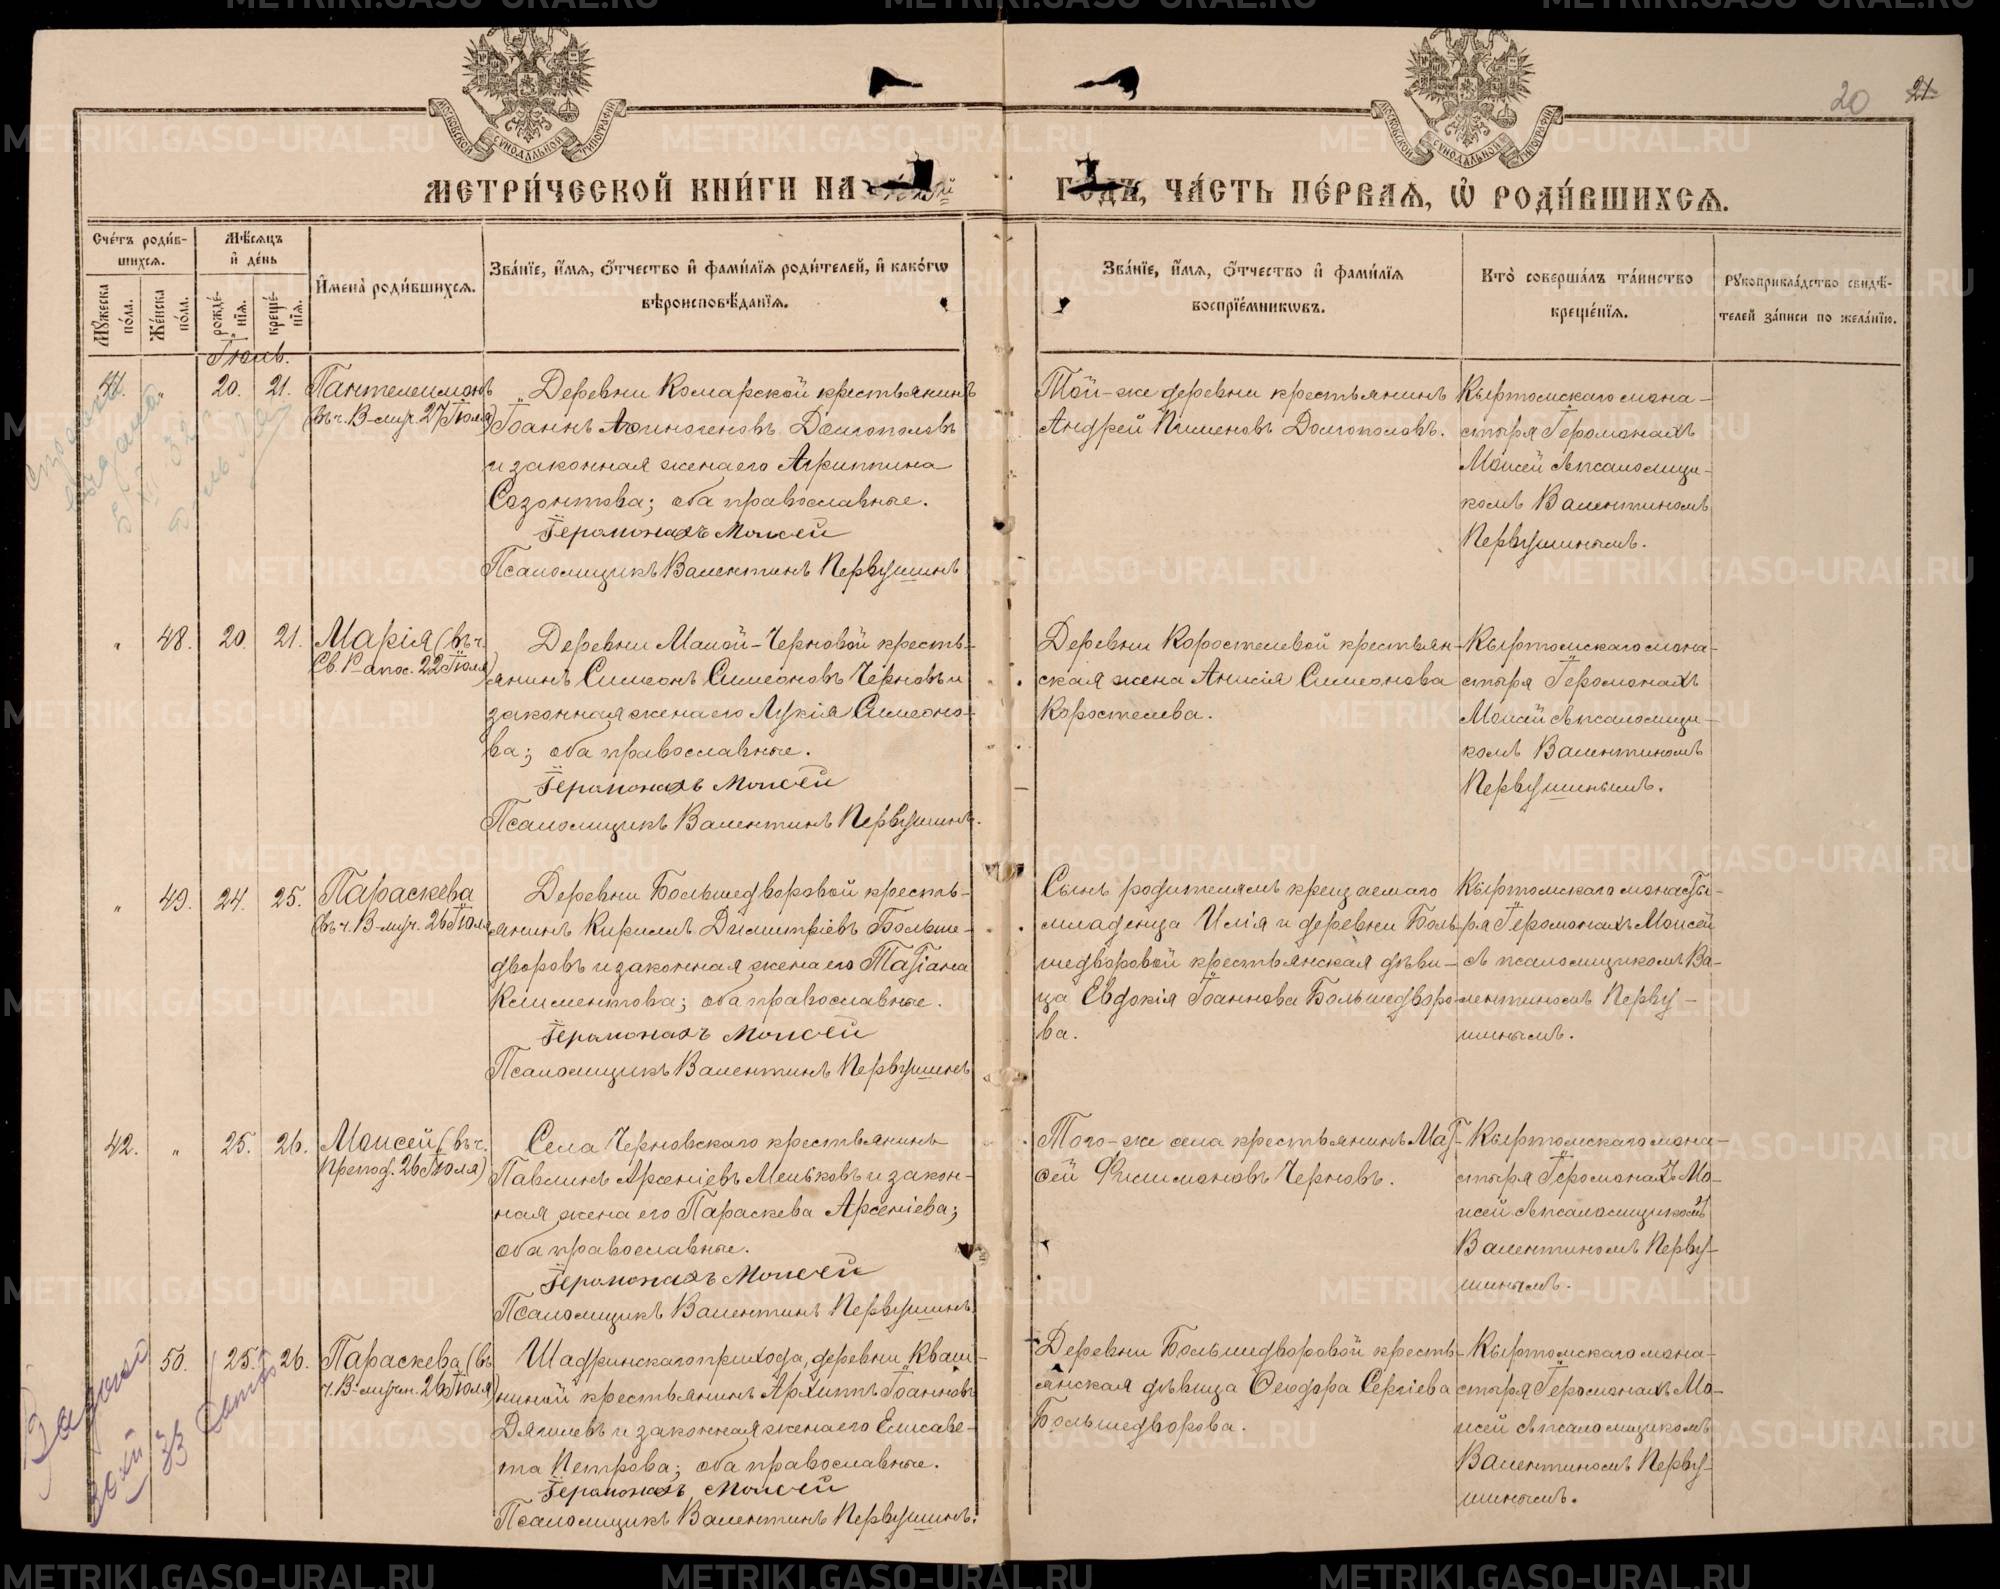 20 21
МОСКОВСКОЙ СѴНОДАЛЬНОЙ ТИПОГРАФІИ
МОСКОВСКОЙ СѴНОДАЛЬНОЙ ТИПОГРАФІИ
МЕТРИ́ЧЕСКОЙ КНИ́ГИ НА
ГОДЪ, ЧА́СТЬ ПЕ́РВАѦ, Ѽ РОДИ́ВШИХСѦ.
Сче́тъ роди́в-
шихсѧ.
Мꙋжеска по́ла.
Же́нска по́ла.
Мѣ́сѧцъ
и҆ де́нь
рожде́-
нїѧ.
креще́-
нїѧ.
И҆мена̀ роди́вшихсѧ.
Зва́нїе, и҆́мѧ, ѻ҆́тчество и҆ фамі́лїѧ роди́телей, и҆ како́гѡ
вѣроисповѣ́данїѧ.
Зва́нїе, и҆́мѧ, ѻ҆́тчество и҆ фамі́лїѧ
воспрїе́мникѡвъ.
Кто̀ соверша́лъ та́инство
креще́нїѧ.
Рꙋкоприкла́дство свидѣ́-
телей за́писи по жела́нїю.
Іюль.
41. „ 20. 21. Пантелеимонъ
(въ ч. В-муч. 27 Іюля)
Деревни Комарской крестьянинъ
Іоаннъ Аѳиногеновъ Долгополовъ
и законная жена его Агриппина
Созонтова; оба православные.
Іеромонахъ Моисей
Псаломщикъ Валентинъ Первушинъ
Той-же деревни крестьянинъ
Андрей Пименовъ Долгополовъ.
Кыртомскаго мона-
стыря Іеромонахъ
Моисей съ псаломщи-
комъ Валентиномъ
Первушинымъ.
„ 48. 20. 21. Марія (въ ч.
Св. Р-апос. 22 Іюля)
Деревни Малой-Черновой кресть-
янинъ Симеонъ Симеоновъ Черновъ и
законная жена его Лукія Симеоно-
ва; оба православные.
Іеромонахъ Моисей
Псаломщикъ Валентинъ Первушинъ.
Деревни Коростелевой крестьян-
ская жена Анисія Симеонова
Коростелева.
Кыртомскаго мона-
стыря Іеромонахъ
Моисей съ псаломщи-
комъ Валентиномъ
Первушинымъ.
„ 49. 24. 25. Параскева
(въ ч. В-муч. 26 Іюля
Деревни Большедворовой кресть-
янинъ Кириллъ Димитріевъ Больше-
дворовъ и законная жена его Татіана
Климентова; оба православные.
Іеромонахъ Моисей
Псаломщикъ Валентинъ Первушинъ
Сынъ родителямъ крещаемаго
младенца Илія и деревни Боль-
шедворовой крестьянская дѣви-
ца Евдокія Іоаннова Большедворо-
ва.
Кыртомскаго монасты-
ря Іеромонахъ Моисей
съ псаломщикомъ Ва-
лентиномъ Перву-
шинымъ.
42. „ 25. 26. Моисей (въ ч.
Препод. 26 Іюля)
Села Черновскаго крестьянинъ
Павлинъ Арсеніевъ Меньковъ и закон-
ная жена его Параскева Арсеніева;
оба православные.
Іеромонахъ Моисей
Псаломщикъ Валентинъ Первушинъ.
Того-же села крестьянинъ Мат-
ѳей Филимоновъ Черновъ.
Кыртомскаго мона-
стыря Іеромонахъ Мо-
исей съ псаломщикомъ
Валентиномъ Перву-
шинымъ.
50. 25. 26. Параскева (въ
ч. В-мучен. 26 Іюля)
Шадринскаго прихода, деревни Кваш-
ниной крестьянинъ Архиппъ Іоанновъ
Дягилевъ и законная жена его Елисаве-
та Петрова; оба православные.
Іеромонахъ Моисей
Псаломщикъ Валентинъ Первушинъ.
Деревни Большедворовой кресть-
янская дѣвица Ѳеодора Сергіева
Большедворова.
Кыртомскаго мона-
стыря Іеромонахъ Мо-
исей съ псаломщикомъ
Валентиномъ Перву-
шинымъ.
METRIKI.GASO-URAL.RU